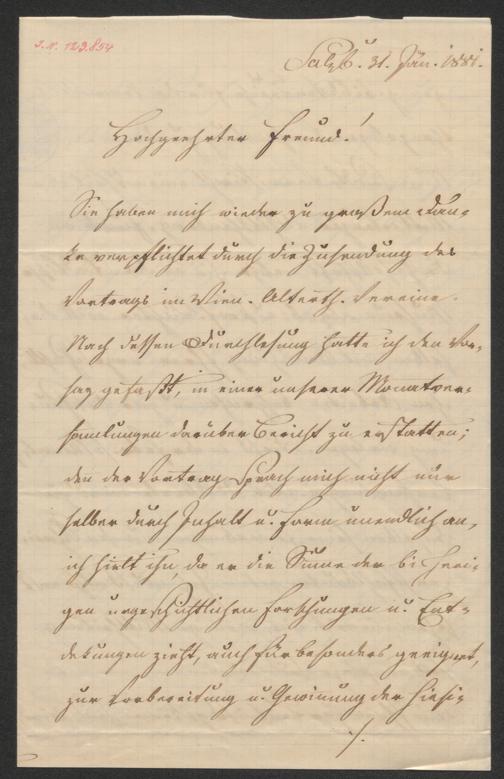 J. N. 129.854
Salzb. 31. Jän. 1881.
Hochgeehrter Freund!
Sie haben mich wieder zu großem Dan-
ke verpflichtet durch die Zusendung des
Vortrags im Wien. Alterth. Vereine.
Nach dessen Durchlesung hatte ich den Vor-
saz gefaßt, in einer unserer Monatver-
sammlungen darüber Bericht zu erstatten;
den der Vortrag sprach mich nicht nur
selber durch Inhalt u. Form unendlich an,
ich hielt ihn, da er die Summe der bisheri-
gen urgeschichtlichen Forschungen u. Ent-
dekungen zieht, auch für besonders geeignet,
zur Vorbereitung u. Gewinung der hiesi-
./.